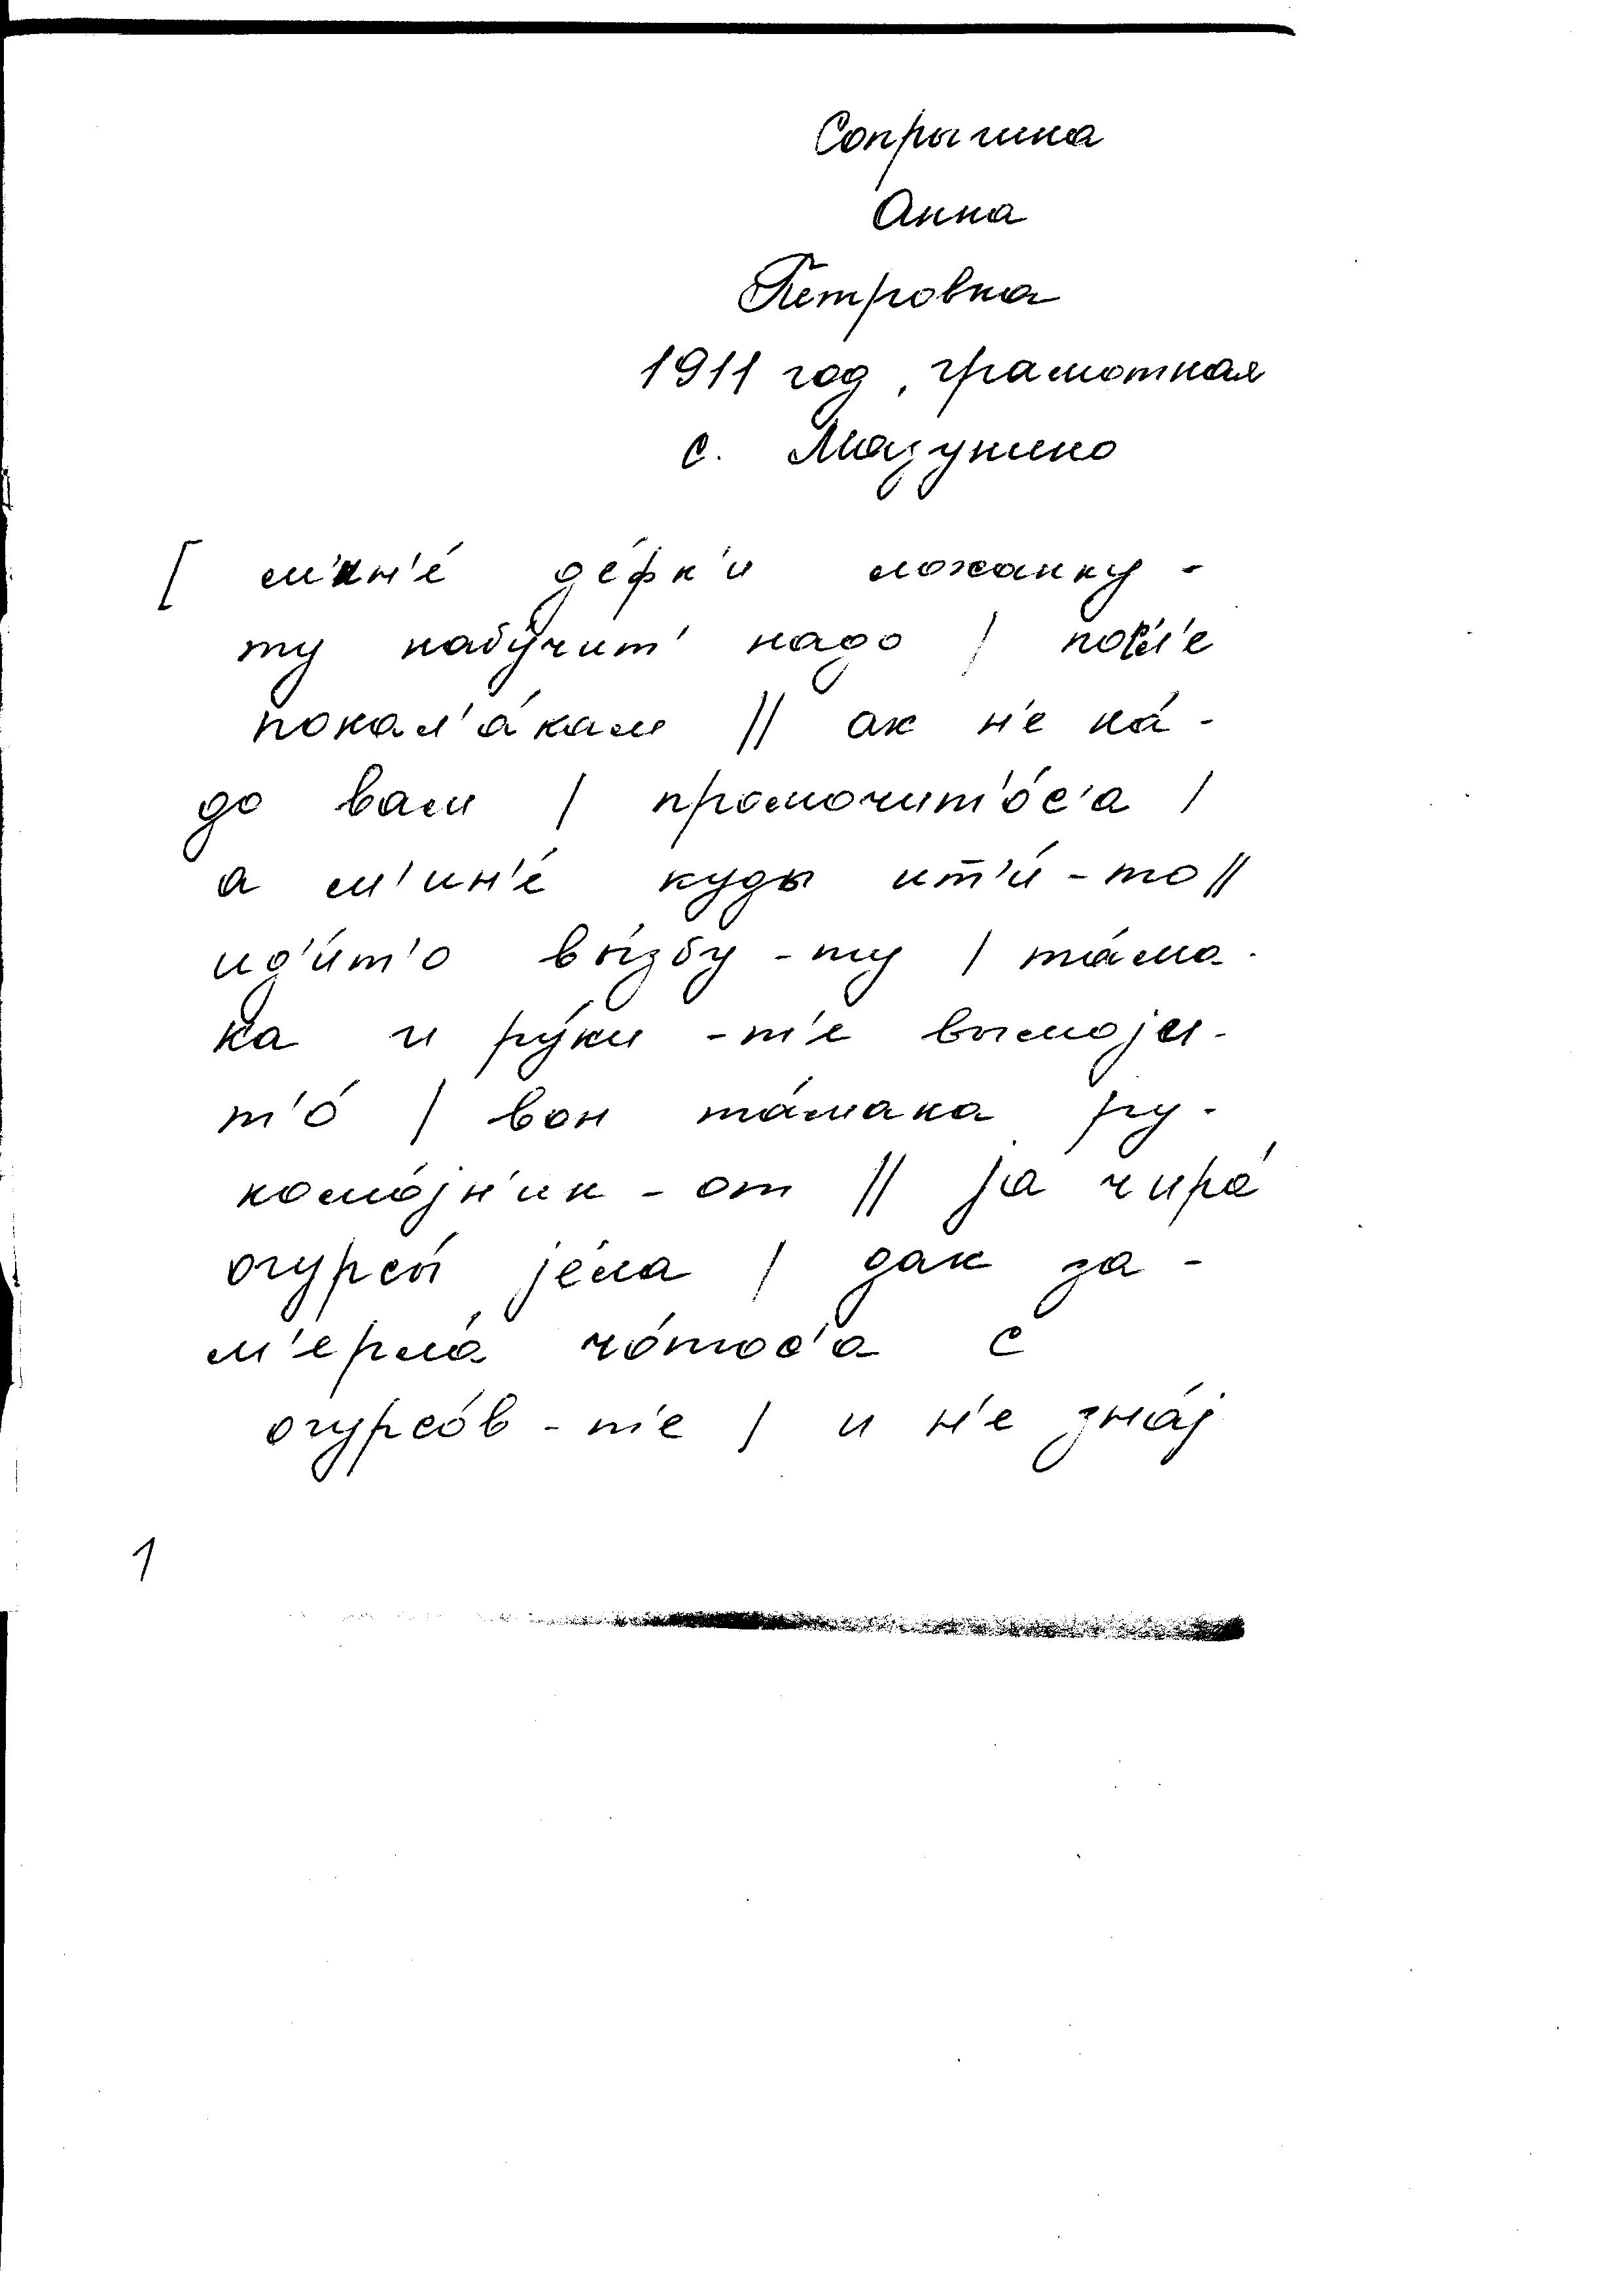 Сопрыгина
Анна
Петровна
1911 год, грамотная
с. Мазунино
[ м'ин'е́ де́фк'и ложанку-
ту набу́чит' надо | посл'е
покал'а́кам || ак н'е на́-
до вам | промочит'о́с'а |
а м'ин'е́ куды ит̄'и́-то ||
ид'и́т'о вы́збу-ту | та́ма-
ка и ру́ки-т'е вымоjи-
т'о́ | вон та́мака ру-
комо́jн'ик-от || jа чира́
огурсы́ jе́ла | дак за-
м'ерла́ чо́тос'а с
огурсо́в-т'е | и н'е зна́j
1